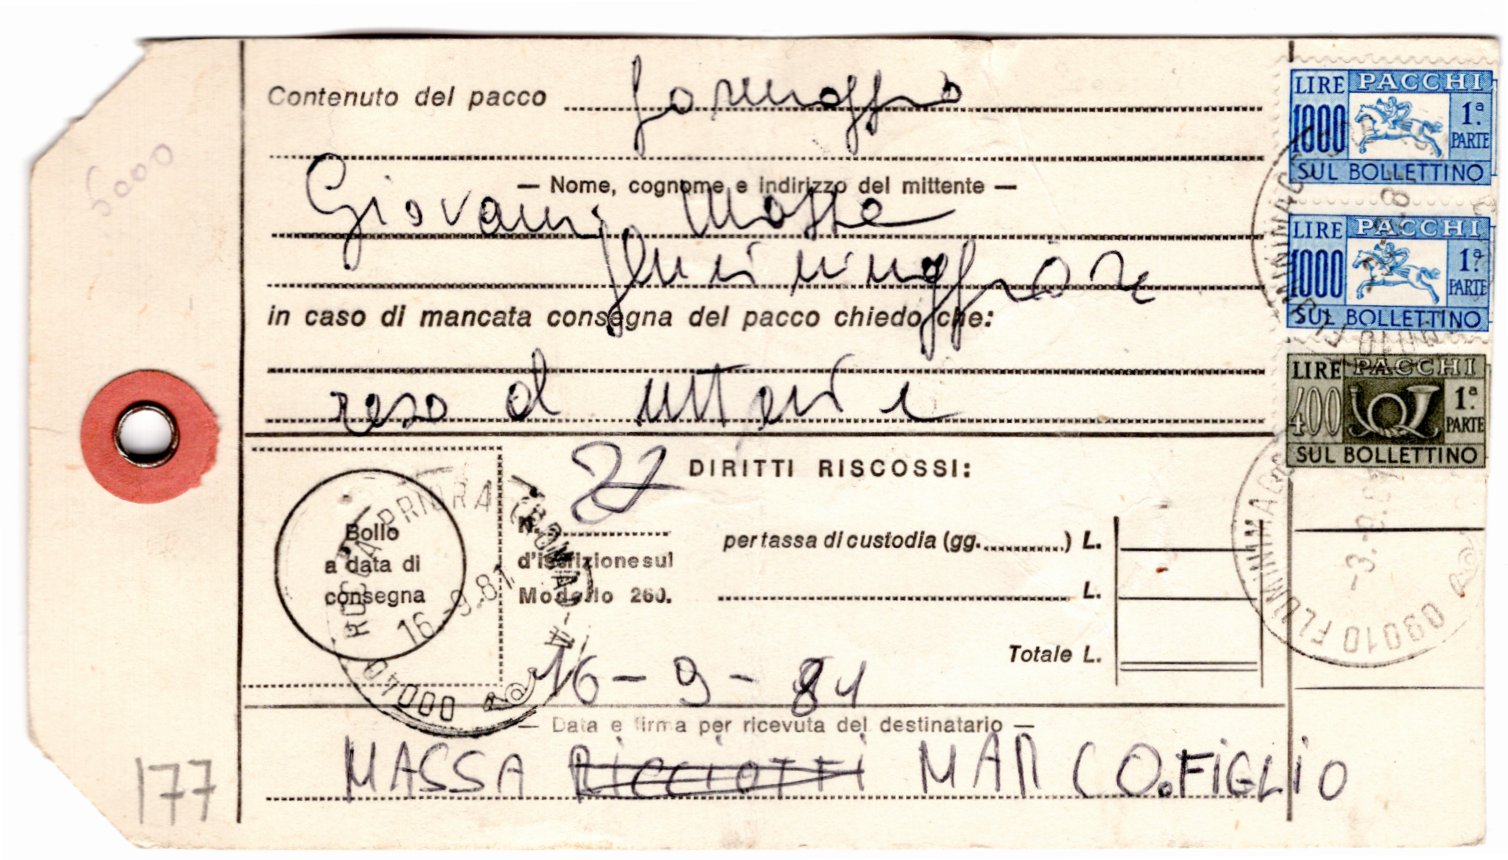 Contenuto del pacco formaggio
— Nome, cognome e indirizzo del mittente —
Giovanni Massa
fluminimaggiore
in caso di mancata consegna del pacco chiedo che:
reso al mittente
27
DIRITTI RISCOSSI:
Bollo
a data di
consegna
N.
d'iscrizione sul
Modello 260.
per tassa di custodia (gg. ) L.
L.
Totale L.
16-9-81
— Data e firma per ricevuta del destinatario —
MASSA RiCCiOTTi MARCO. FiGLiO
177
5000
LIRE PACCHI
1000 1ª PARTE
SUL BOLLETTINO
LIRE PACCHI
1000 1ª PARTE
SUL BOLLETTINO
LIRE PACCHI
400 1ª PARTE
SUL BOLLETTINO
ROCCA PRIORA (ROMA)
16.9.81
00040
09010 FLUMINIMAGG
-3.-9.81